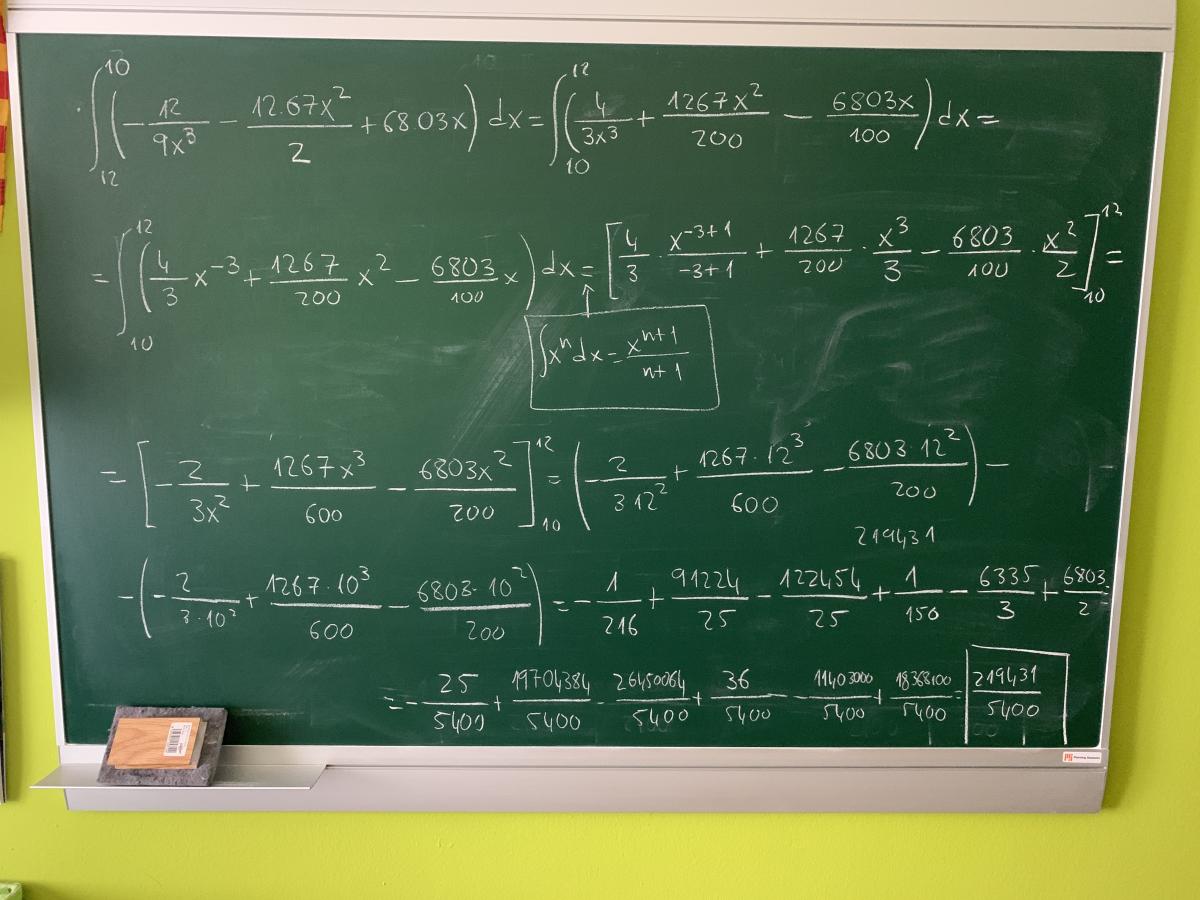 ∫₁₂¹⁰ (-12/9x³ - 12.67x²/2 + 68.03x) dx = ∫₁₀¹² (4/3x³ + 1267x²/200 - 6803x/100) dx =
= ∫₁₀¹² (4/3 x⁻³ + 1267/200 x² - 6803/100 x) dx = [4/3 · x⁻³⁺¹/-3+1 + 1267/200 · x³/3 - 6803/100 · x²/2]₁₀¹² =
∫xⁿdx = xⁿ⁺¹/n+1
= [-2/3x² + 1267x³/600 - 6803x²/200]₁₀¹² = (-2/3·12² + 1267·12³/600 - 6803·12²/200) -
219431
-(-2/3·10² + 1267·10³/600 - 6803·10²/200) = -1/216 + 91224/25 - 122454/25 + 1/150 - 6335/3 + 6803/2
= -25/5400 + 19704384/5400 - 26450064/5400 + 36/5400 - 11403000/5400 + 18368100/5400 = 219431/5400